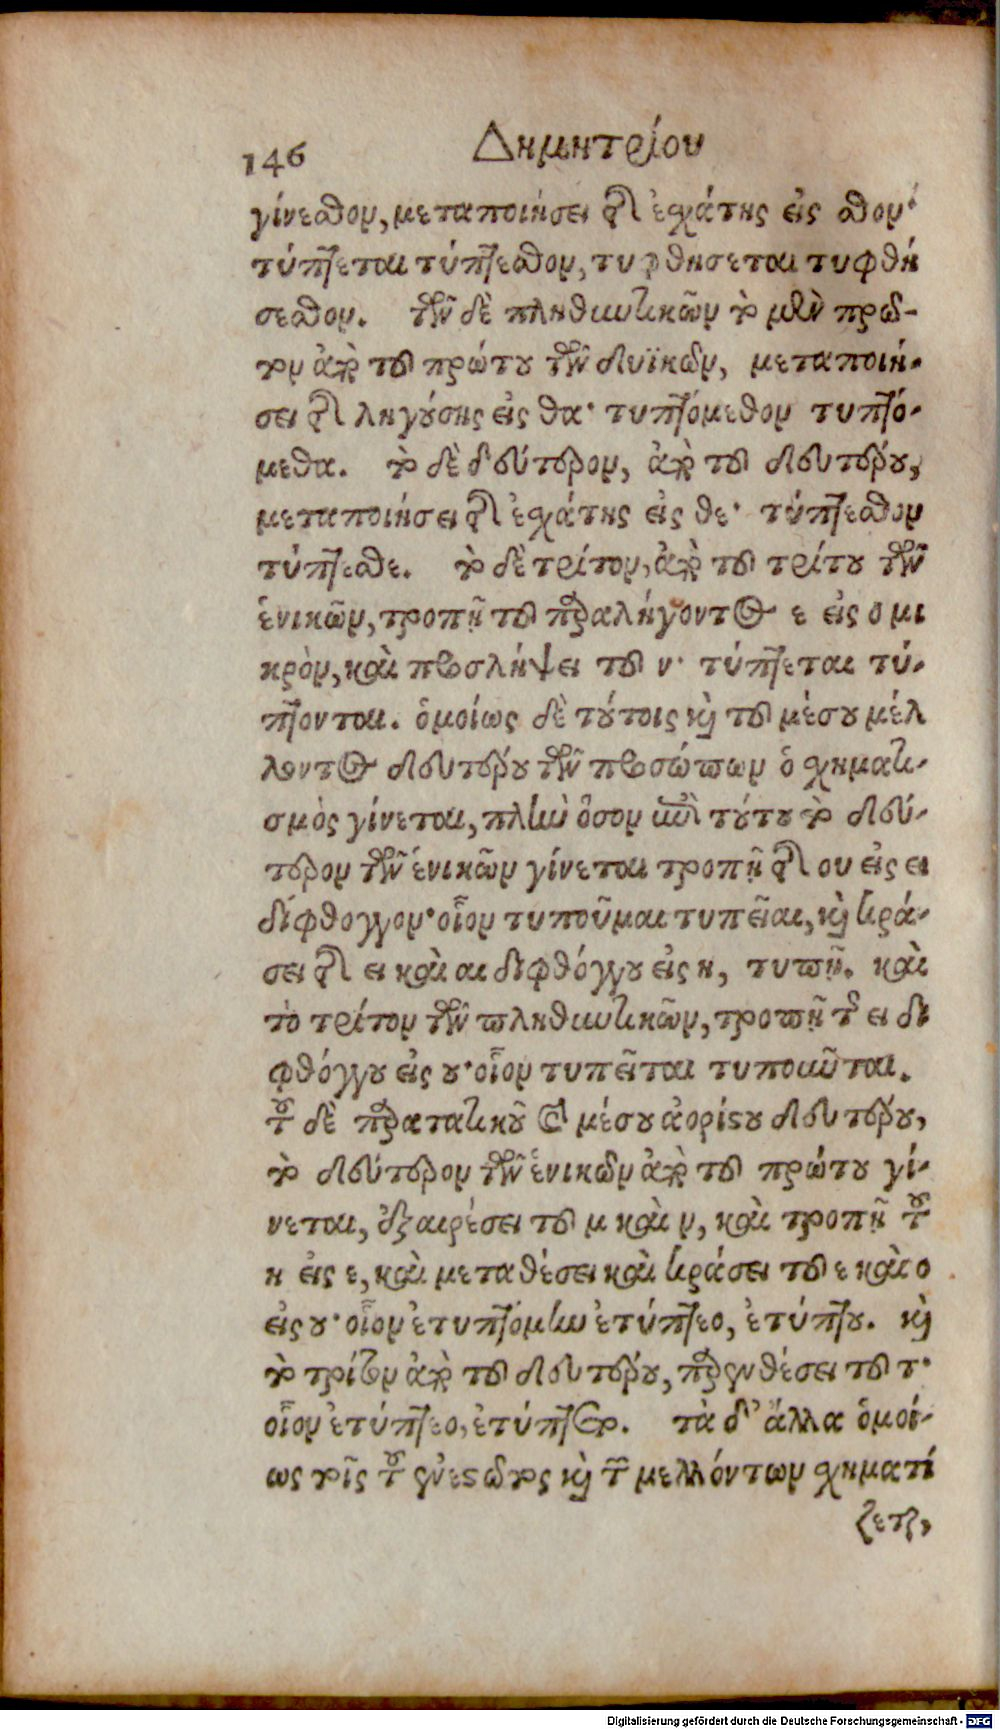 146 Δημητρίου
γίνεσθον, μεταποιήσει τῆς ἐσχάτης εἰς σθον·
τύπτεται τύπτεσθον, τυφθήσεται τυφθή
σεσθον. τῶν δὲ πληθυντικῶν τὸ μὲν πρῶ-
τον ἀπὸ τοῦ πρώτου τῶν δυϊκῶν, μεταποιή-
σει τῆς ληγούσης εἰς θα· τυπτόμεθον τυπτό-
μεθα. τὸ δὲ δεύτερον, ἀπὸ τοῦ δευτέρου,
μεταποιήσει τῆς ἐσχάτης εἰς θε· τύπτεσθον
τύπτεσθε. τὸ δὲ τρίτον, ἀπὸ τοῦ τρίτου τῶν
ἑνικῶν, τροπῇ τοῦ παραλήγοντος ε εἰς ο μι
κρὸν, καὶ προσλήψει τοῦ ν· τύπτεται τύ-
πτονται. ὁμοίως δὲ τούτοις καὶ τοῦ μέσου μέλ
λοντος δευτέρου τῶν προσώπων ὁ σχηματι-
σμὸς γίνεται, πλὴν ὅσον ἐπὶ τούτου τὸ δεύ-
τερον τῶν ἑνικῶν γίνεται τροπῇ τῆς ου εἰς ει
δίφθογγον· οἷον τυποῦμαι τυπεῖαι, καὶ κρά-
σει τῆς ει καὶ αι διφθόγγου εἰς η, τυπῇ. καὶ
τὸ τρίτον τῶν πληθυντικῶν, τροπῇ τῆς ει δι
φθόγγου εἰς ου· οἷον τυπεῖται τυποῦνται.
τοῦ δὲ παρατατικοῦ καὶ μέσου ἀορίστου δευτέρου,
τὸ δεύτερον τῶν ἑνικῶν ἀπὸ τοῦ πρώτου γί-
νεται, ἐξαιρέσει τοῦ μ καὶ ν, καὶ τροπῇ τοῦ
η εἰς ε, καὶ μεταθέσει καὶ κράσει τοῦ ε καὶ ο
εἰς ου· οἷον ἐτυπτόμην ἐτύπτεο, ἐτύπτου. καὶ
τὸ τρίτον ἀπὸ τοῦ δευτέρου, παρενθέσει τοῦ τ·
οἷον ἐτύπτεο, ἐτύπτετο. τὰ δ' ἄλλα ὁμοί-
ως τοῖς τοῦ ἐνεστῶτος καὶ τῶν μελλόντων σχηματί
ζεται,
Digitalisierung gefördert durch die Deutsche Forschungsgemeinschaft - DFG